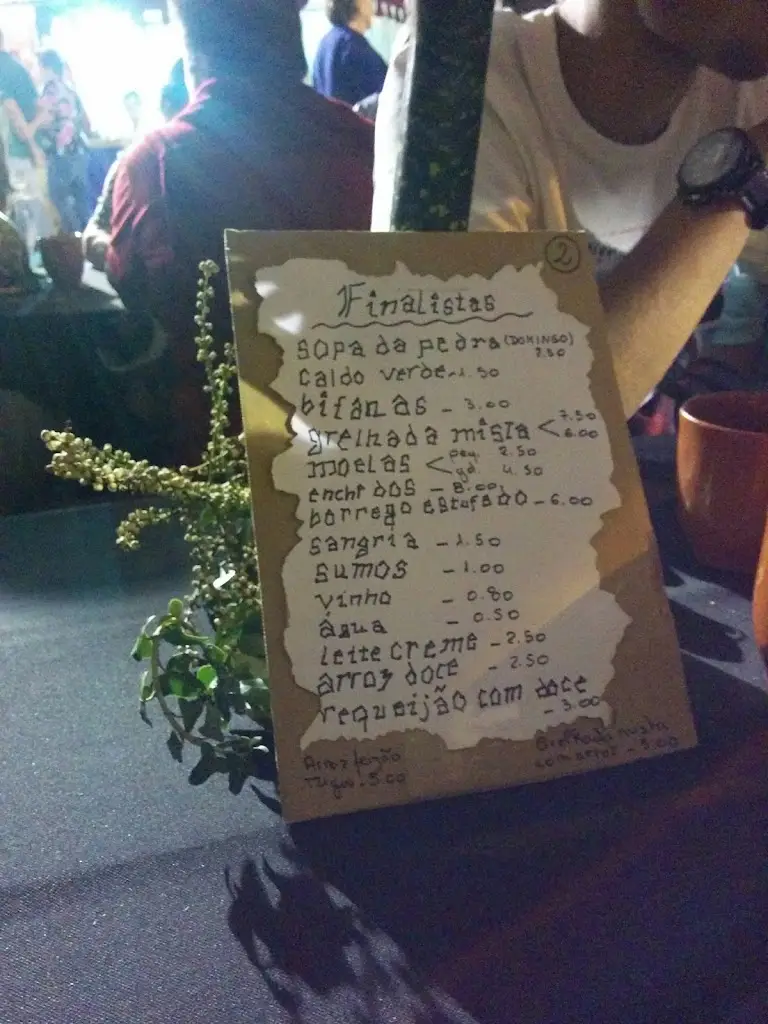 2
Finalistas
sopa da pedra (DOMINGO) 2.50
caldo verde - 1.50
bifanas - 3.00
grelhada mista < 7.50 6.00
moelas < peq. 2.50 gd 4.50
enchidos - 8.00
borrego estufado - 6.00
sangria - 1.50
sumos - 1.00
vinho - 0.80
água - 0.50
leite creme - 2.50
arroz doce - 2.50
requeijão com doce - 3.00
Arroz feijão
- 5.00
Grelhada mista
com arroz - 5.00